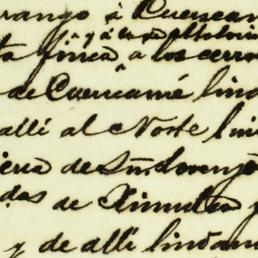 rango á Cuencam
y á la
ta finca a los cerros
de Cuencamé lind
alli al Norte lin
de Sn. Lorenzo
das de Ximulco y
y de alli lindan